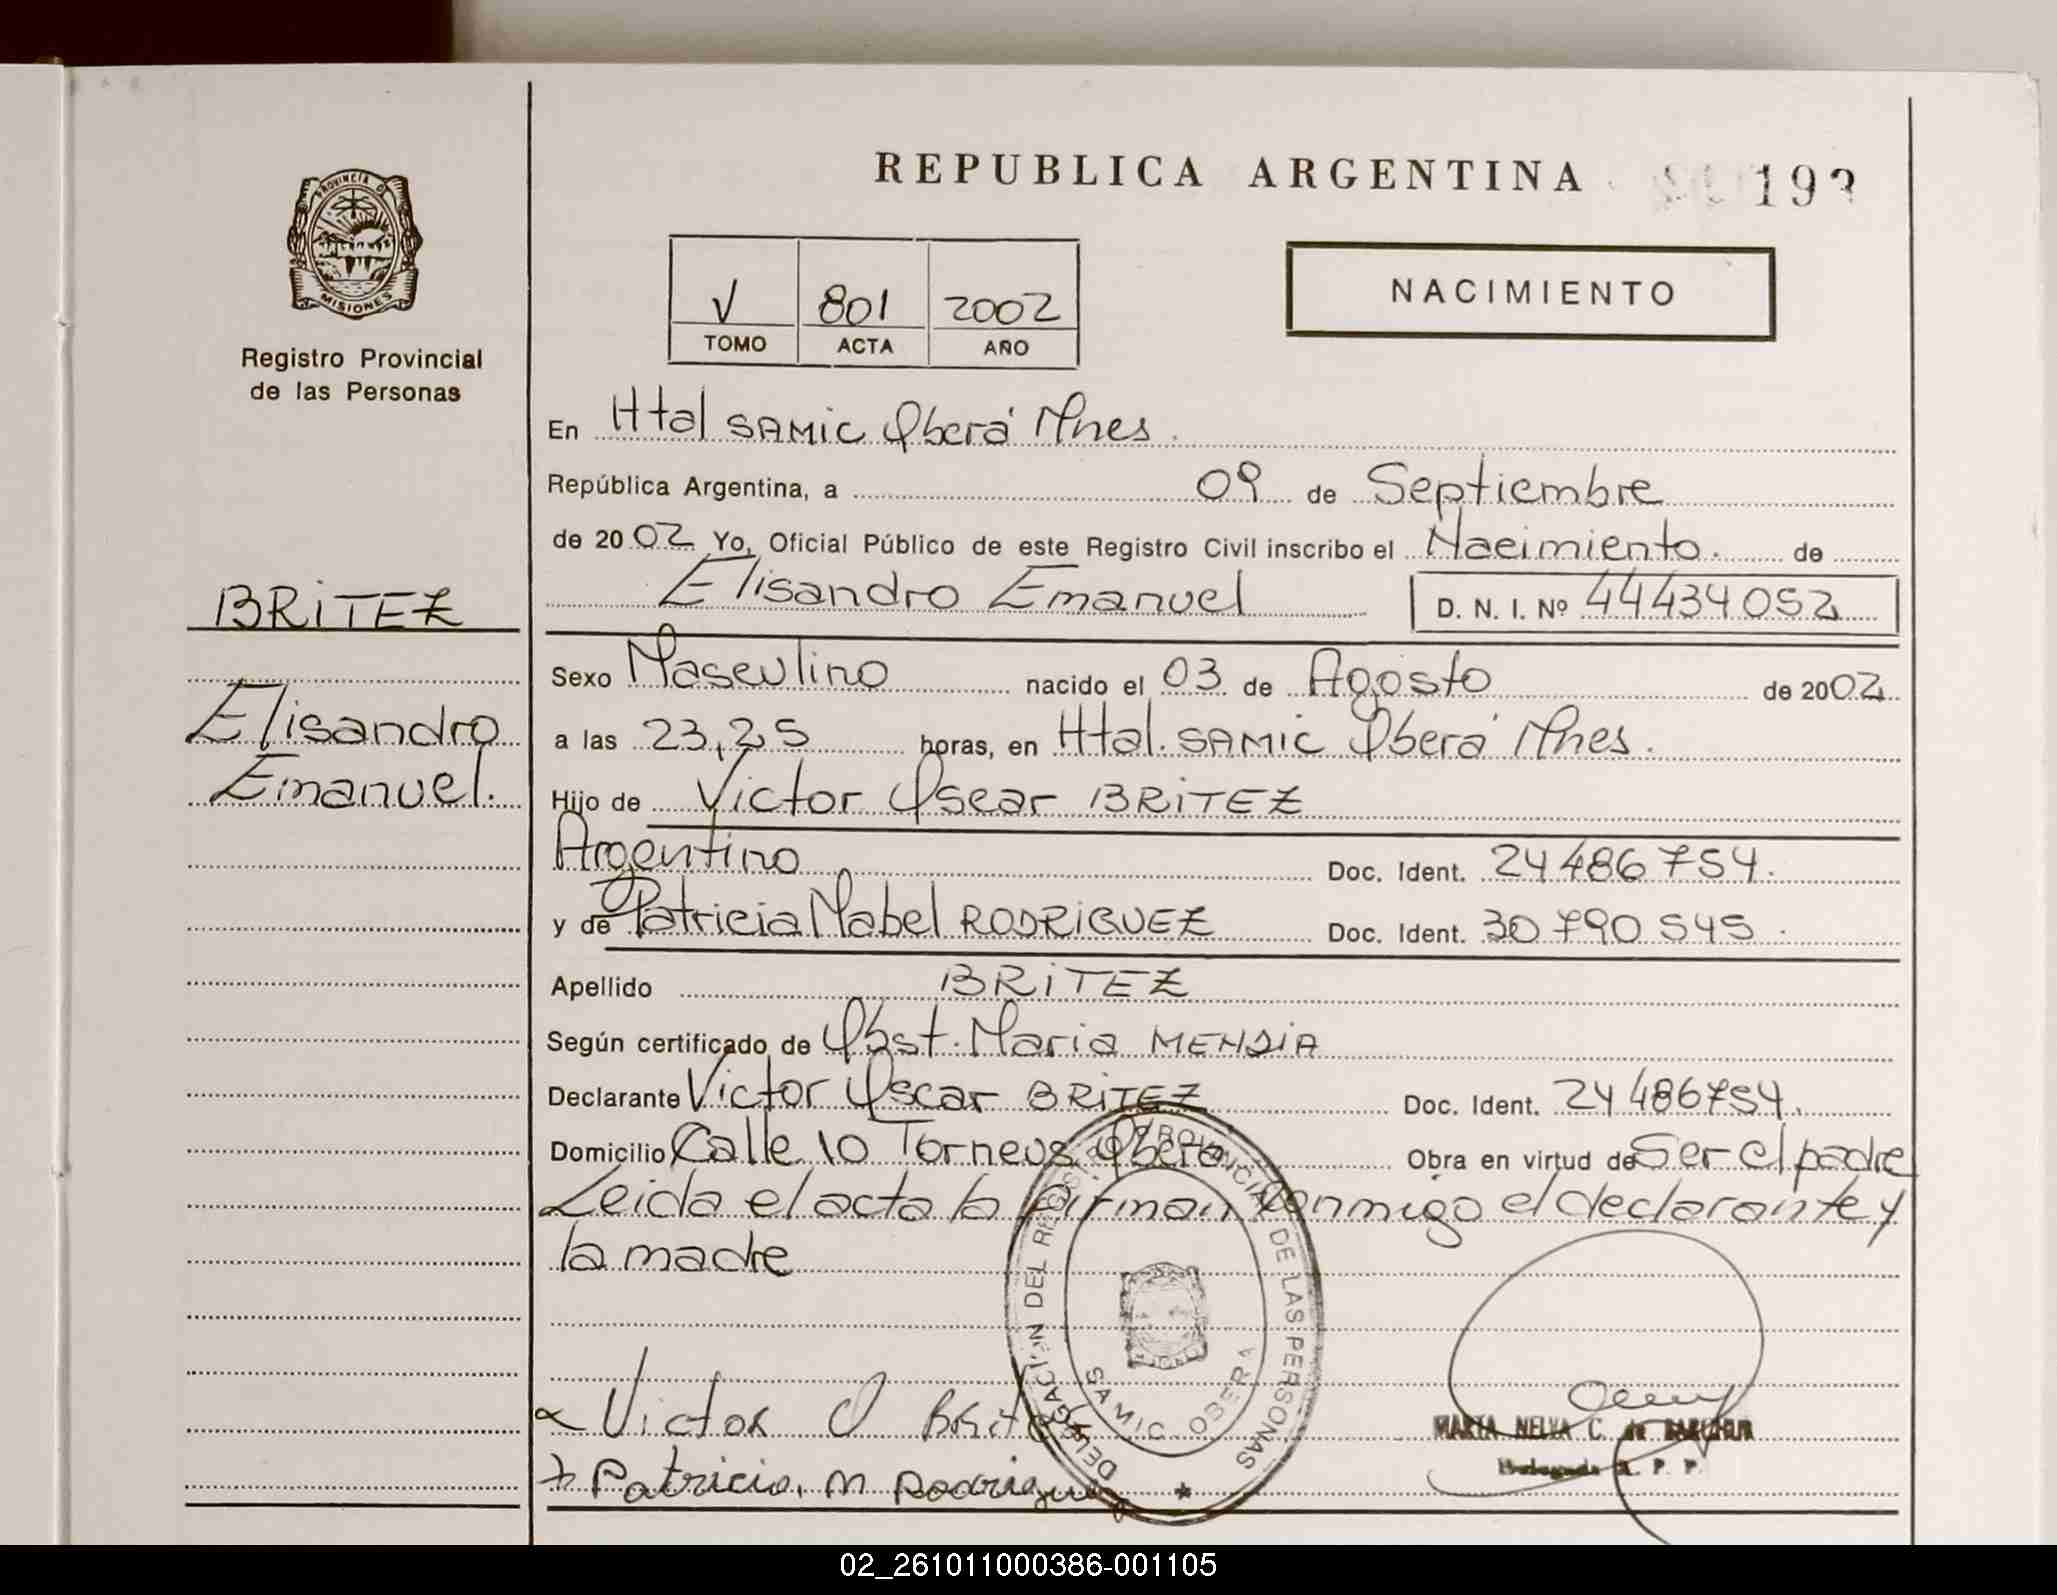 REPUBLICA ARGENTINA
193
PROVINCIA DE
MISIONES
Registro Provincial
de las Personas
NACIMIENTO
V 801 2002
TOMO ACTA AÑO
En Htal SAMIC Oberá Mnes.
República Argentina, a 09 de Septiembre
de 2002 Yo, Oficial Público de este Registro Civil inscribo el Nacimiento. de
Elisandro Emanuel D. N. I. Nº 44434052
BRITEZ
Elisandro
Emanuel.
Sexo Masculino nacido el 03 de Agosto de 2002
a las 23,25 horas, en Htal. SAMIC Oberá Mnes.
Hijo de Victor Oscar BRITEZ
Argentino Doc. Ident. 24 486 754.
y de Patricia Mabel RODRIGUEZ Doc. Ident. 30 790 545.
Apellido BRITEZ
Según certificado de Obst. Maria
Declarante Victor Oscar BRITEZ Doc. Ident. 24 486754.
Domicilio Calle 10 Torneus Oberá Obra en virtud de Ser el padre
Leida el acta la firman conmigo el declarante y
la madre
DELEGACION DEL REGISTRO PROVINCIAL DE LAS PERSONAS
SAMIC OBERA
Victor O Britez
Patricia. M Rodriguez
MARTA NELVA C. de
Delegada R. P. P.
02_261011000386-001105